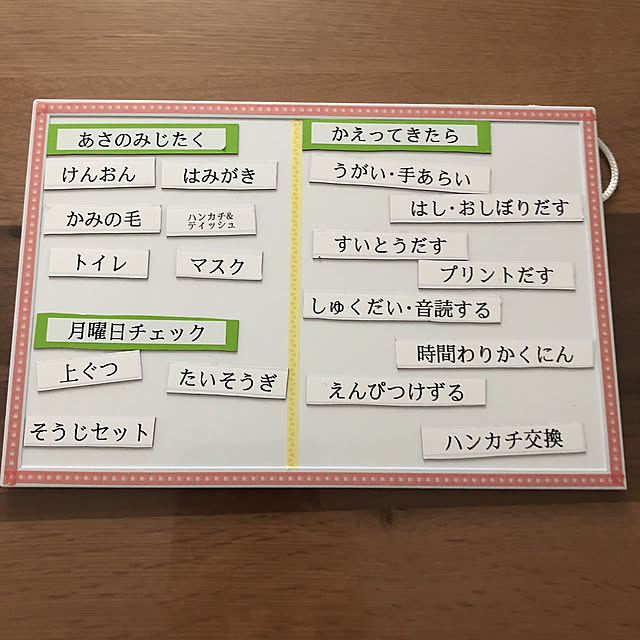 あさのみじたく
けんおん
はみがき
かみの毛
ハンカチ&
ティッシュ
トイレ
マスク
月曜日チェック
上ぐつ
たいそうぎ
そうじセット
かえってきたら
うがい・手あらい
はし・おしぼりだす
すいとうだす
プリントだす
しゅくだい・音読する
時間わりかくにん
えんぴつけずる
ハンカチ交換